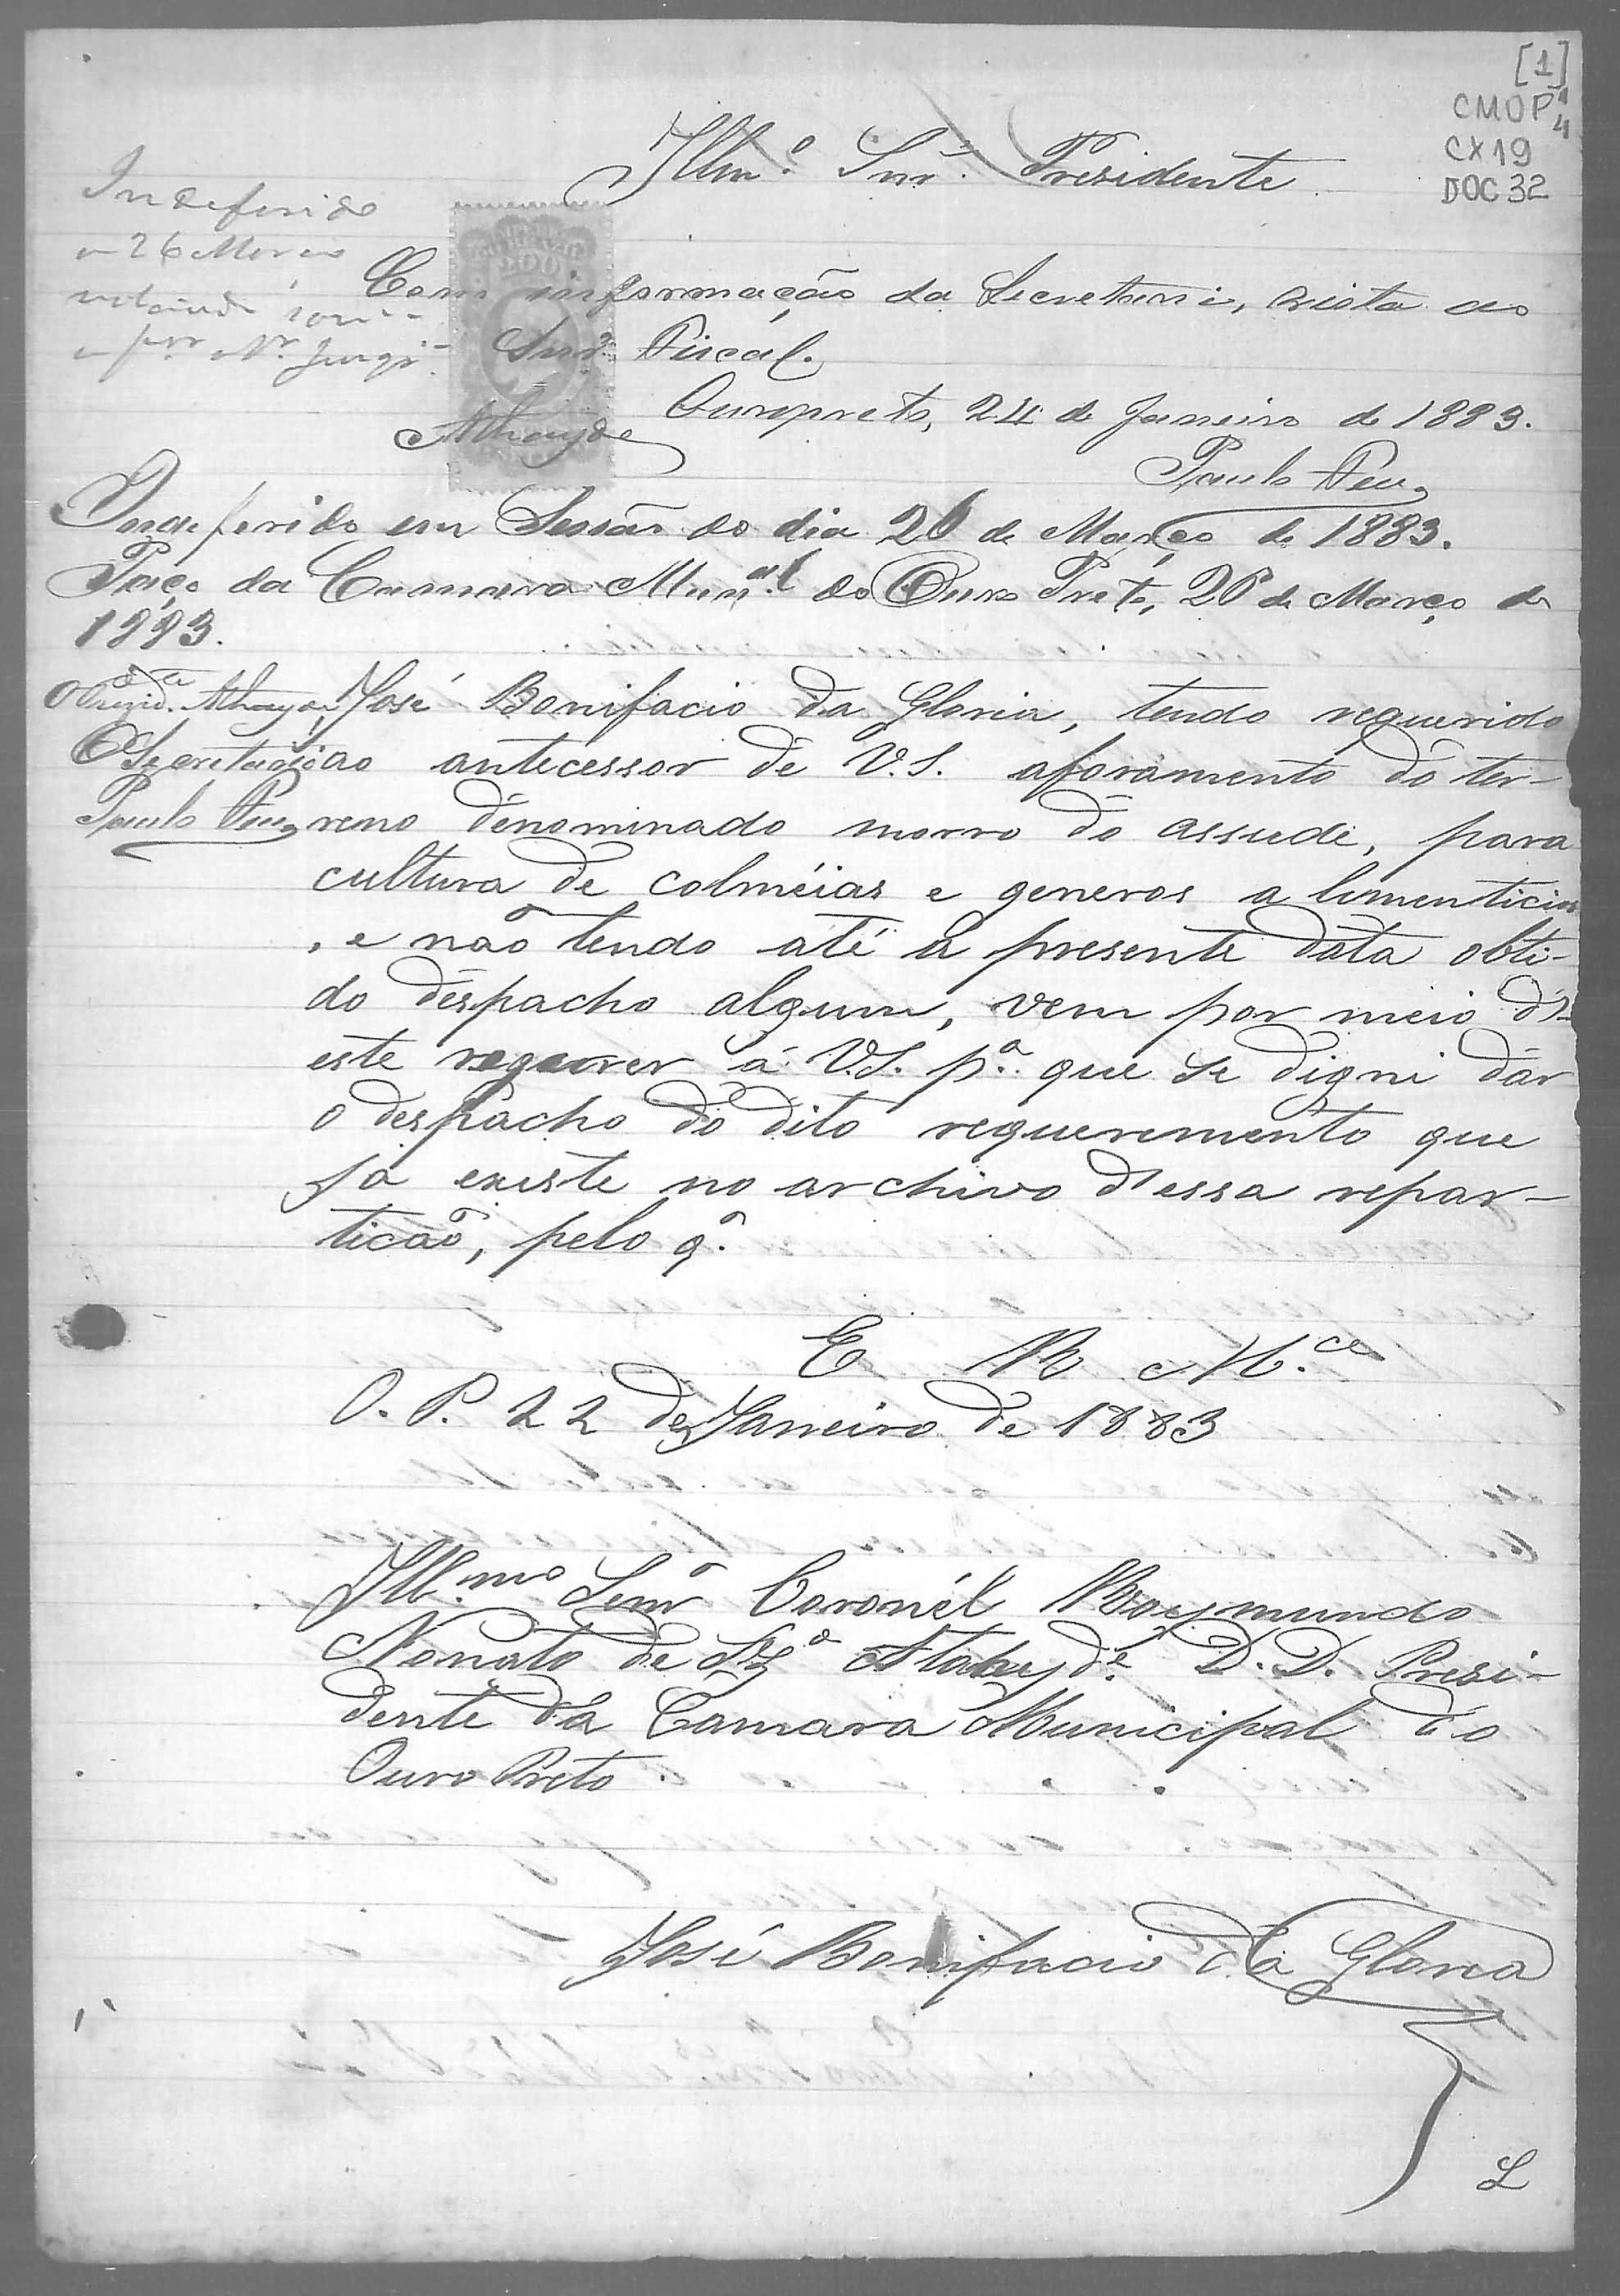 [1]
CMOP
CX19
DOC 32
Illmº. Snr. Presidente
Indeferido
26 Março
Com informação da Secretaria, vista ao
Snr. Fiscal.
Ouropreto, 24 de Janeiro de 1883.
Athayde
200
Indeferido em Sessão do dia 26 de Março de 1883.
Paço da Camara Mun.al do Ouro Preto, 26 de Março de
1883.
O Presid.e Athayde
O Secretario
José Bonifacio da Gloria, tendo requerido
ao antecessor de V.S. aforamento do ter-
reno denominado morro do assude, para
cultura de colméias e generos a limenticios
, e não tendo até a presente data obti-
do despacho algum, vem por meio d'-
este requerer á V.S. pª. que se digni dar
o despacho do dito requeremento que
ja existe no archivo d'essa repar-
ticão, pelo q.
E R M.ce
O. P. 22 de Janeiro de 1883
Ill.mo Senr Coronél Raymundo
Nonato de Athayde D. D. Presi-
dente da Camara Municipal do
Ouro Preto.
José Bonifacio da Gloria